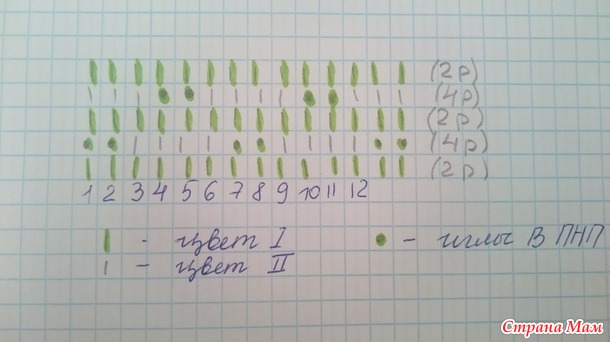 (2р)
(4р)
(2р)
(4р)
(2р)
1 2 3 4 5 6 7 8 9 10 11 12
- цвет I
- иглы в ПНП
- цвет II
Страна Мам